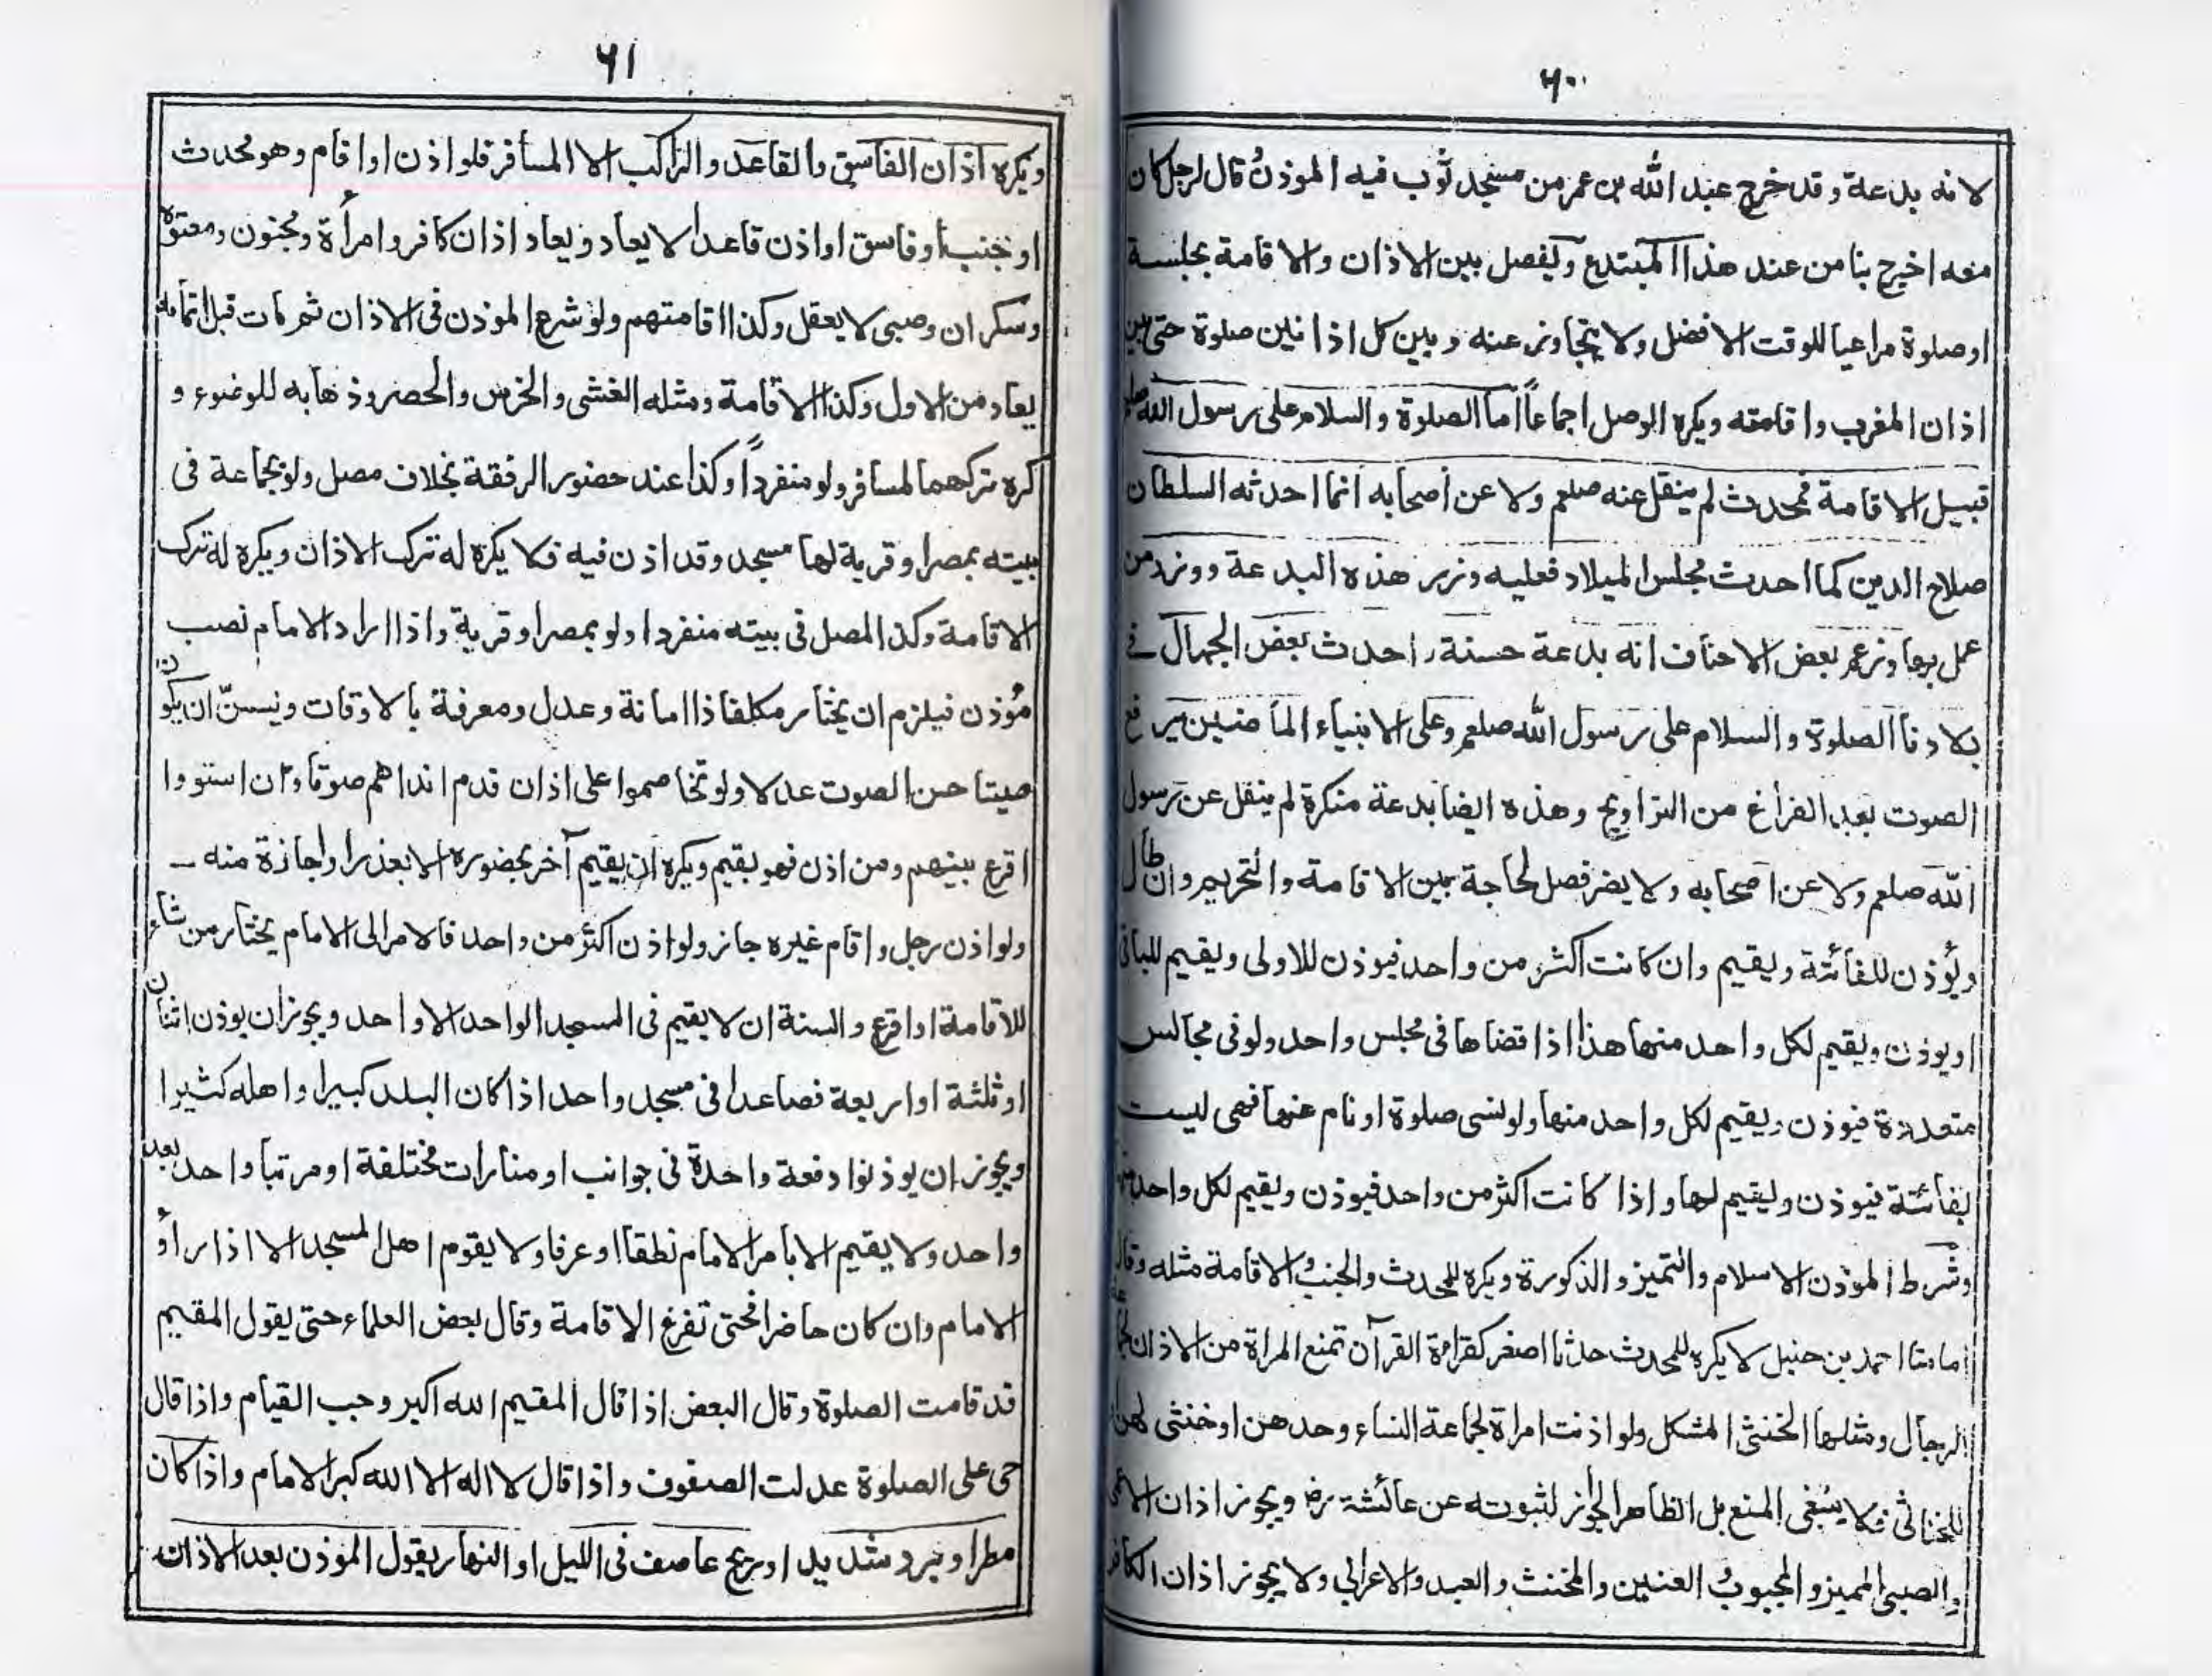 ۶۰
لانه بدعة وقد خرج عبد الله بن عمر من مسجد ثُوّب فيه الموذنُ قال لرجل كان
معه اخرج بنا من عند هذا المبتدع ويفصل بين الاذان والاقامة بجلسة
او صلوة مراعيا للوقت الافضل ولا يتجاوز عنه وبين كل اذانين صلوة حتى بين
اذان المغرب واقامته ويكره الوصل اجماعاً اما الصلوة والسلام على رسول الله صلعم
قبيل الاقامة فمحدث لم ينقل عنه صلعم ولا عن أصحابه انما احدثه السلطان
صلاح الدين كما احدث مجلس الميلاد فعليه وزر هذه البدعة ووزر من
عمل بها وزعم بعض الاحناف انه بدعة حسنة واحدث بعض الجهال في
بلادنا الصلوة والسلام على رسول الله صلعم وعلى الانبياء الماضين برفع
الصوت بعد الفراغ من التراويح وهذه ايضا بدعة منكرة لم ينقل عن رسول
الله صلعم ولا عن اصحابه ولا يضر فصل لحاجة بين الاقامة والتحريم وان طال
ويُؤذن للفائتة ويقيم وان كانت اكثر من واحد فيوذن للاولى ويقيم للباقى
او يوذن ويقيم لكل واحد منها هذا اذا قضاها فى مجلس واحد ولو فى مجالس
متعددة فيوذن ويقيم لكل واحد منها ولو نسى صلوة او نام عنها فهى ليست
بفائتة فيوذن وليقيم لها واذا كانت اكثر من واحد فيوذن ويقيم لكل واحد منها
وشرط الموذن الاسلام والتميز والذكورة ويكره للمحدث والجنبُ الاقامة مثله وقال
امامنا احمد بن حنبل لا يكره للمحدث حدثا اصغر كقراءة القرآن تمنع المراة من الاذان لجماعة
الرجال ومثلها الخنثى المشكل ولو اذنت امراة لجماعة النساء وحدهن او خنثى لهن
للخناثى فلا ينبغى المنع بل الظاهر الجواز لثبوته عن عائشة رض ويجوز اذان الاعمى
والصبى المميز والمجبوبُ العنين والمخنث والعبد والاعرابى ولا يجوز اذان الكافر
۶۱
ويكره اذان الفاسق والقاعد والراكب الا المسافر فلو اذن او اقام وهو محدث
او جنب أو فاسق او اذن قاعدا لا يعاد ويعاد اذان كافر وامرأة ومجنون ومعتوه
وسكران وصبى لا يعقل وكذا اقامتهم ولو شرع الموذن فى الاذان ثم مات قبل اتمامه
يعاد من الاول وكذا الاقامة ومثله الغشى والخرس والحصر وذهابه للوضوء و
كره تركهما لمسافر ولو منفرداً وكذا عند حضور الرفقة بخلاف مصل ولو بجماعة فى
بيته بمصر او قرية لها مسجد وقد اذن فيه فلا يكره له ترك الاذان ويكره له ترك
الاقامة وكذا المصل فى بيته منفردا ولو بمصر او قرية واذا اراد الامام نصب
مُوذن فيلزم ان يختار مكلفا ذا امانة وعدل ومعرفة بالاوقات ويسنّ ان يكون
صيتا حسن الصوت عدلا ولو تخاصموا على اذان قدم انداهم صوتا وان استووا
اقرع بينهم ومن اذن فهو يقيم ويكره ان يقيم آخر بحضوره الا بعذر او اجازة منه ــ
ولو اذن رجل واقام غيره جاز ولو اذن اكثر من واحد فالامر الى الامام يختار من شاء
للاقامة او اقرع والسنة ان لا يقيم فى المسجد الواحد الا واحد ويجوز ان يوذن اثنان
او ثلثة او اربعة فصاعدا فى مسجد واحد اذا كان البلد كبيرا واهله كثيرا
ويجوز ان يوذنوا دفعة واحدة فى جوانب او منارات مختلفة او مرتبا واحد بعد
واحد ولا يقيم الا بامر الامام نطقا او عرفا ولا يقوم اهل المسجد الا اذا رأو
الامام وان كان حاضرا فحتى تفرغ الاقامة وقال بعض العلماء حتى يقول المقيم
قد قامت الصلوة وقال البعض اذا قال المقيم الله اكبر وجب القيام واذا قال
حى على الصلوة عدلت الصفوف واذا قال لا اله الا الله كبر الامام واذا كان
مطر او برد شديد او ريح عاصف فى الليل او النهار يقول الموذن بعد الاذان